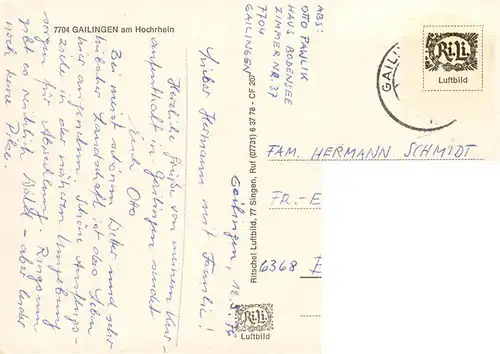 7704 GAILINGEN am Hochrhein
Gailingen, 12.9.76
Lieber Hermann mit Familie!
Herzliche Grüße von meinem Kur-
aufenthalt in Gailingen sendet
Euch Otto
Bei meist schönem Wetter und sehr
lieblicher Landschaft ist das Leben
hier angenehm. Schöne Ausflugs-
ziele in der näheren Umgebung
sorgen für Abwechslung. Ringsum
gibt es reichlich Wald – aber leider
noch keine Pilze.
ABS:
OTTO PAWLIK
HAUS BODENSEE
ZIMMER NR. 37
7704
GAILINGEN
Ritschel Luftbild, 77 Singen, Ruf (07731) 6 57 78 - CF 207
RiLi
Luftbild
GAILIN
RiLi
Luftbild
FAM. HERMANN SCHMIDT
FR.-E
6368